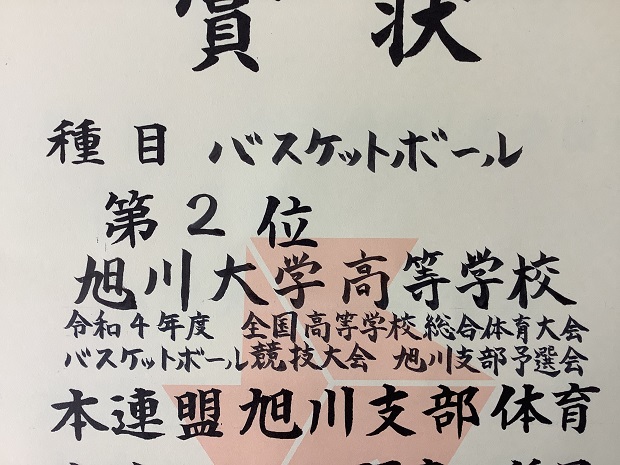 賞状
種目 バスケットボール
第2位
旭川大学高等学校
令和4年度 全国高等学校総合体育大会
バスケットボール競技大会 旭川支部予選会
本連盟旭川支部体育